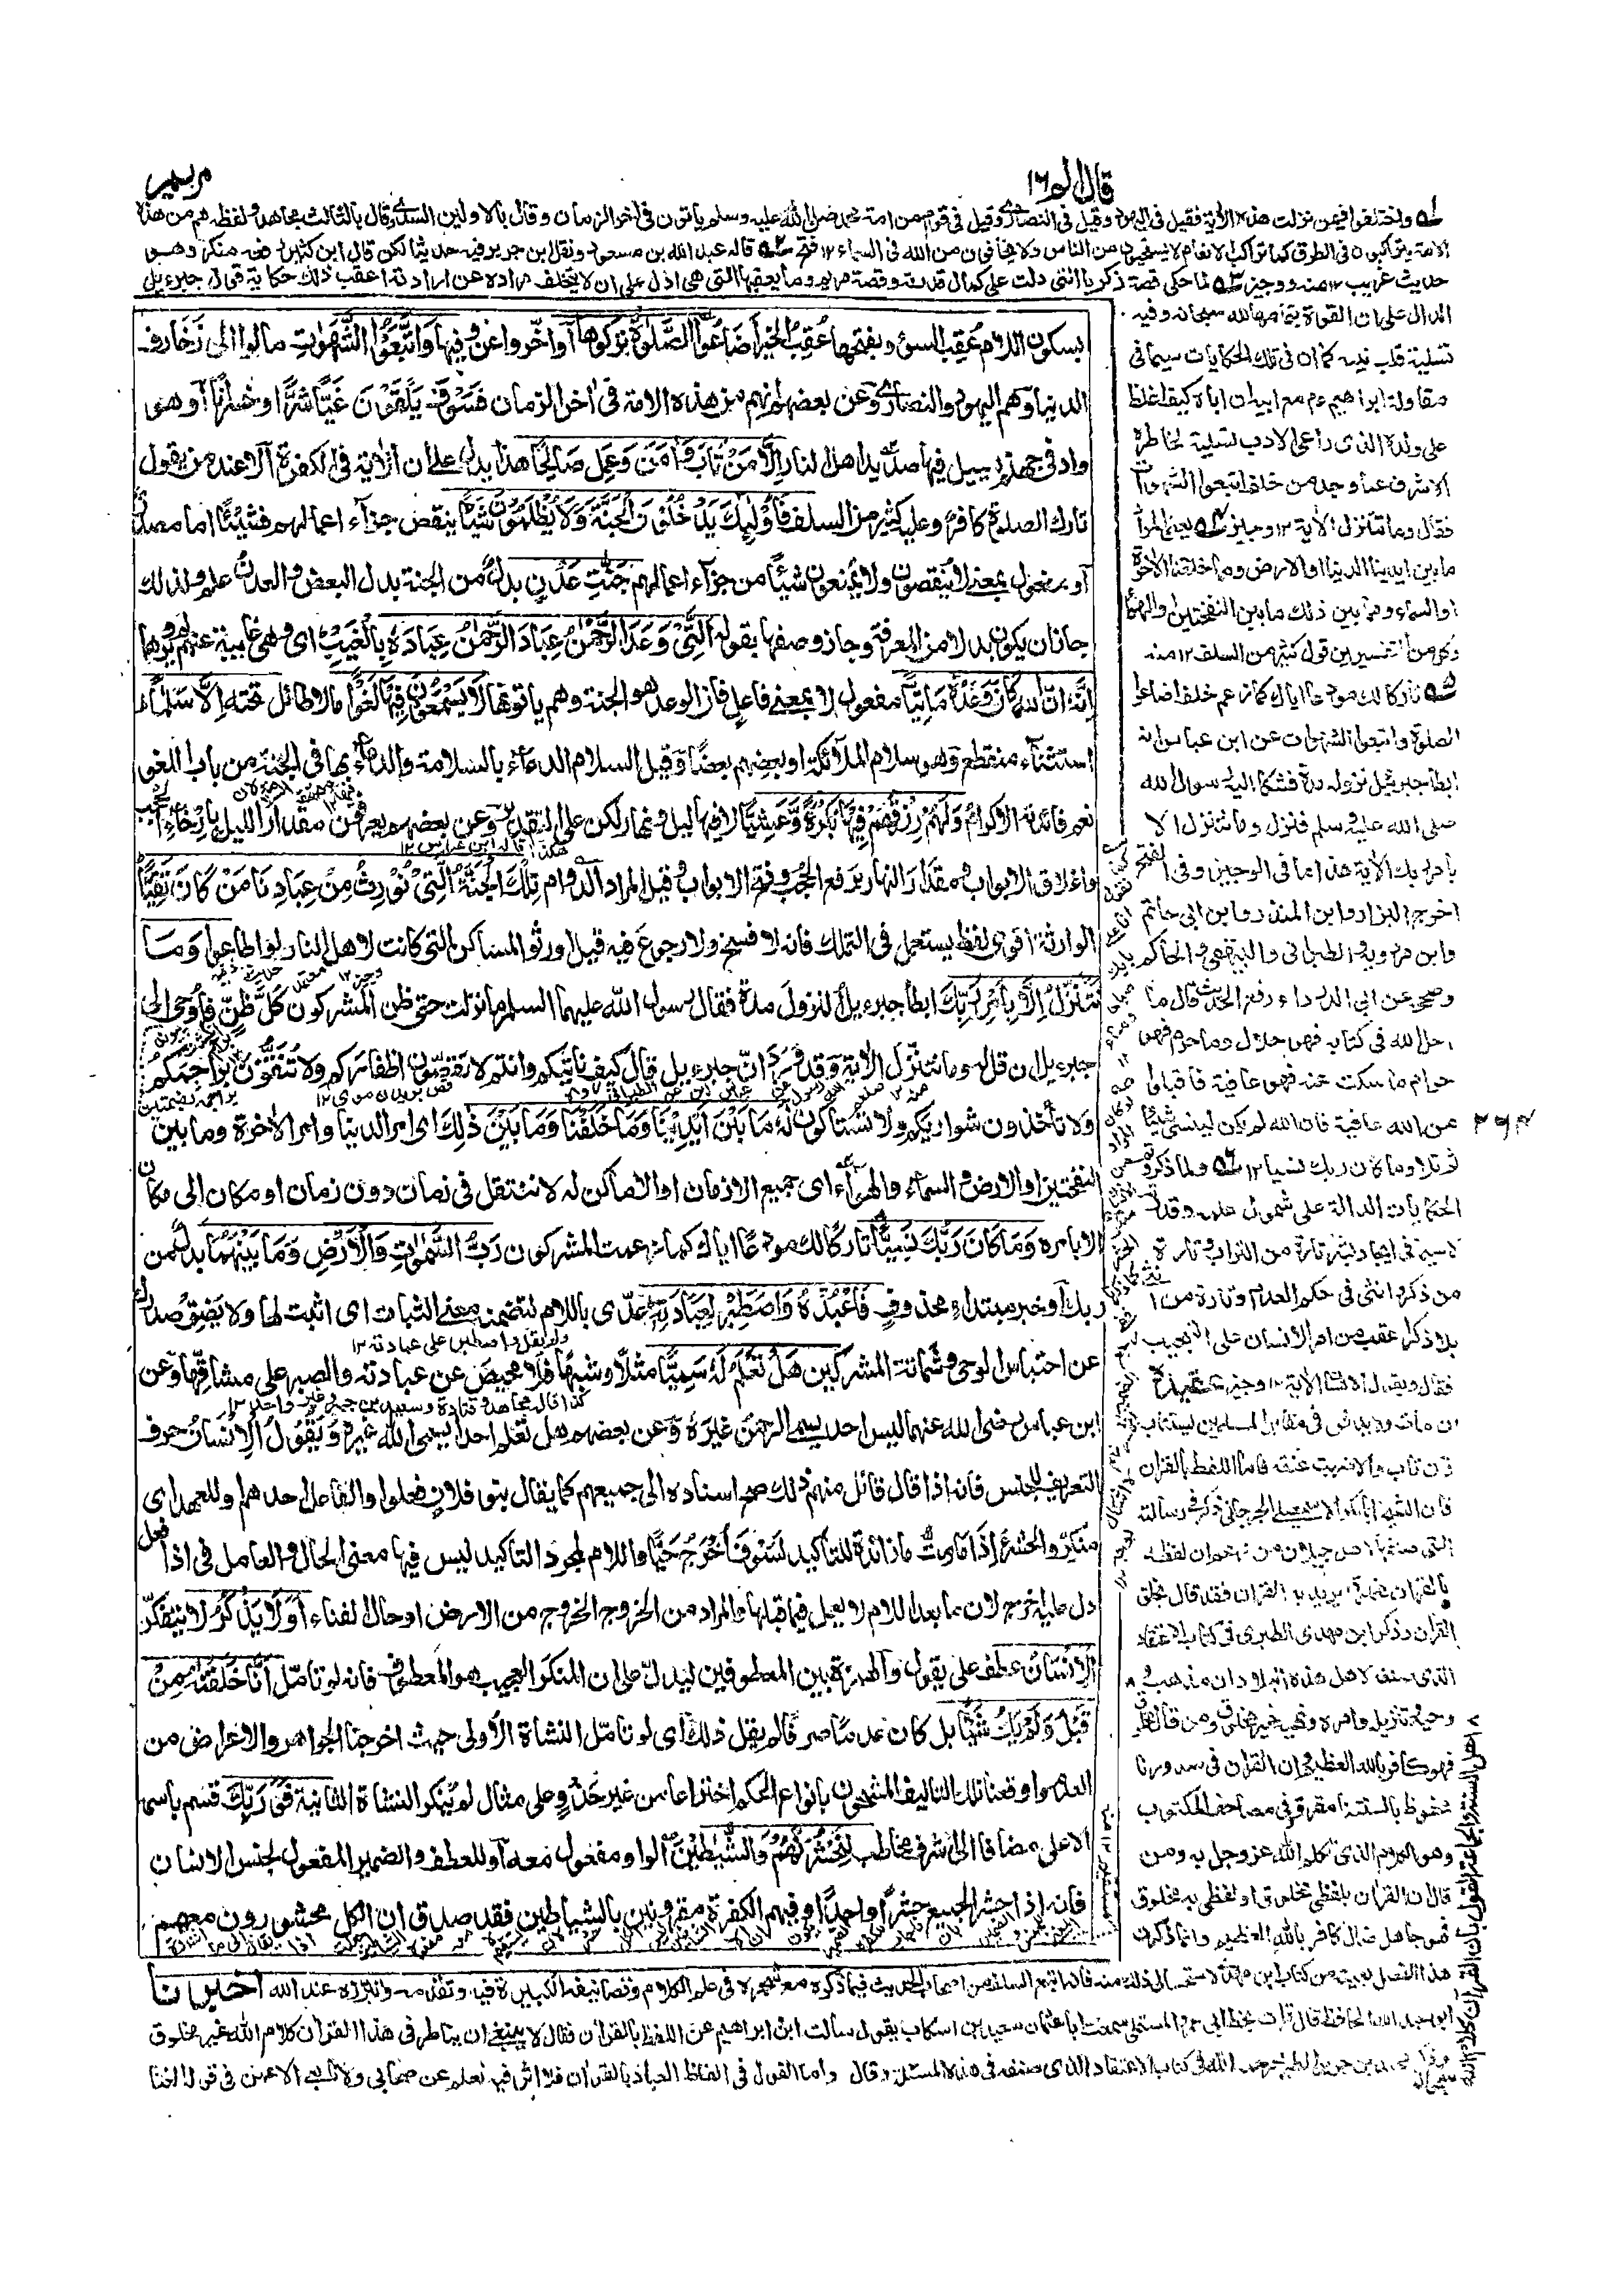 قال الم ١٦
مريم
واختلفوا فيمن نزلت هذه الآية فقيل فى اليهود وقيل فى النصارى وقيل فى قوم من امة محمد صلى الله عليه وسلم ياتون فى اخر الزمان وقال بالاولين السدى وقال بالثالث مجاهد ولفظه هم من هذه
الامة يتراكبون فى الطرق كما تراكب الانعام لا يستحيون من الناس ولا يخافون من الله فى السماء ١٢ فتح قاله عبد الله بن مسعود ونقل ابن جرير فيه حديثا لكن قال ابن كثير رفعه منكر وهو
حديث غريب ١٢ منه ووجيز لما حكى قصة زكريا التى دلت على كمال قدرته وقصة مريم وما يعقبها التى هى ادل على ان لا يتخلف مراده عن ارادته اعقب ذلك حكاية قول جبرءيل
بسكون اللام عقب السوء وبفتحها عقب الخير اَضَاعُوا الصَّلٰوةَ تركوها او اخروا عن وقتها وَاتَّبَعُوا الشَّهَوٰتِ مالوا الى زخارف
الدنيا وهم اليهود والنصارى وعن بعضهم انهم من هذه الامة فى اخر الزمان فَسَوْفَ يَلْقَوْنَ غَيًّا شرًّا او خسرانا او هو
واد فى جهنم يسيل فيها صديد اهل النار اِلَّا مَنْ تَابَ وَاٰمَنَ وَعَمِلَ صَالِحًا هذا يدل على ان الاية فى الكفرة الا عند من يقول
تارك الصلوة كافر وعليه كثير من السلف فَاُولٰٓئِكَ يَدْخُلُوْنَ الْجَنَّةَ وَلَا يُظْلَمُوْنَ شَيْئًا بنقص جزاء اعمالهم فشيئًا اما مصدر
او مفعول بمعنى لا ينقصون ولا يمنعون شيئًا من جزاء اعمالهم جَنّٰتِ عَدْنِ بدل من الجنة بدل البعض والعدن علم ولذلك
جاز ان يكون بدلا من المعرفة وجاز وصفها بقوله الَّتِىْ وَعَدَ الرَّحْمٰنُ عِبَادَهٗ بِالْغَيْبِ اى وهى غايبة عنهم لم يروها
اِنَّهٗ ان الله كَانَ وَعْدُهٗ مَاْتِيًّا مفعول لا بمعنى فاعل فان الوعد هو الجنة وهم ياتونها لَا يَسْمَعُوْنَ فِيْهَا لَغْوًا ما لا طائل تحته اِلَّا سَلٰمًا
استثناء منقطع وهو سلام الملائكة او بعضهم بعضًا وقيل السلام الدعاء بالسلامة والدعاء بها فى الجنة من باب اللغو
نعم فائدته الاكرام وَلَهُمْ رِزْقُهُمْ فِيْهَا بُكْرَةً وَّعَشِيًّا لا فيها ليل ونهار لكن على التقدير وعن بعضهم يعرفون مقدار الليل بارخاء الحجب
واغلاق الابواب ومقدار النهار برفع الحجب وفتح الابواب وقيل المراد الدوام تِلْكَ الْجَنَّةُ الَّتِىْ نُوْرِثُ مِنْ عِبَادِنَا مَنْ كَانَ تَقِيًّا
الوراثة اقوى لفظ يستعمل فى التملك فانه لا فسخ ولا رجوع فيه قيل اورثوا المساكن التى كانت لاهل النار لو اطاعوا وَمَا
نَتَنَزَّلُ اِلَّا بِاَمْرِ رَبِّكَ ابطأ جبرءيل النزول مدة فقال رسول الله عليهما السلام ما نزلت حتى ظن المشركون كل ظن فاوحى الى
جبرءيل ان قل له وما نتنزل الاية وقد ورد ان جبرءيل قال كيف ناتيكم وانتم لا تقصّون اظفاركم ولا تنقون براجمكم
ولا تأخذون شواربكم ولا تستاكون لَهٗ مَا بَيْنَ اَيْدِيْنَا وَمَا خَلْفَنَا وَمَا بَيْنَ ذٰلِكَ اى امر الدنيا وامر الاخرة وما بين
النفختين او الارض والسماء والهواء اى جميع الازمان او الاماكن له لا ننتقل فى زمان دون زمان او مكان الى مكان
الا بامره وَمَا كَانَ رَبُّكَ نَسِيًّا تاركا لك مودعًا اياك كما زعمت المشركون رَبُّ السَّمٰوٰتِ وَالْاَرْضِ وَمَا بَيْنَهُمَا بدل من
ربك او خبر مبتداء محذوف فَاعْبُدْهُ وَاصْطَبِرْ لِعِبَادَتِهٖ عدّى باللام لتضمنه معنى الثبات اى اثبت لها ولا يضيق صدرك
عن احتباس الوحى وشماتة المشركين هَلْ تَعْلَمُ لَهٗ سَمِيًّا مثلًا وشبهًا فلا محيص عن عبادته والصبر على مشاقّها وعن
ابن عباس رضى الله عنهما ليس احد يسمى الرحمٰن غيره وعن بعضهم هل تعلم احدا يسمى الله غيره وَيَقُوْلُ الْاِنْسَانُ حرف
التعريف للجنس فانه اذا قال قائل منهم ذلك صح اسناده الى جميعهم كما يقال بنو فلان فعلوا والفاعل احدهم او للعهد اى
منكر والحشر ءَاِذَا مَا مِتُّ ما زائدة للتاكيد لَسَوْفَ اُخْرَجُ حَيًّا واللام لمجرد التاكيد ليس فيها معنى الحال والعامل فى اذا فعل
دل عليه اخرج لان ما بعد اللام لا يعمل فيما قبلها والمراد من الخروج الخروج من الارض او حال الفناء اَوَلَا يَذْكُرُ لا يتفكر
الْاِنْسَانُ عطف على يقول والهمزة بين المعطوفين ليدل على ان المنكر العجيب هو المعطوف فانه لو تامّل اَنَّا خَلَقْنٰهُ مِنْ
قَبْلُ وَلَمْ يَكُ شَيْئًا بل كان عدما صرفا لم يقل ذلك اى لو تامّل النشاة الاولى حيث اخرجنا الجواهر والاعراض من
العدم واوقعنا تلك التاليف المشحون بانواع الحكم اختراعا من غير حذو على مثال لم ينكر النشاة الثانية فَوَرَبِّكَ قسم باسمه
الاعلى مضافا الى اشرف مخاطب لَنَحْشُرَنَّهُمْ وَالشَّيٰطِيْنَ الواو مفعول معه او للعطف والضمير المفعول لجنس الانسان
فانه اذا حشر الجميع حشرًا واحدًا وفيهم الكفرة مقرونين بالشياطين فقد صدق ان الكل محشورون معهم
الدال على ان القوة بتمامها لله سبحانه وفيه
تسلية قلب نبيه كما ان فى تلك الحكايات سيما فى
مقاولة ابراهيم عم مع ابيه ان اباه كيف اغلظ
على ولده الذى راعى الادب تسلية لخاطره
الاشرف عما وجد من خلف اتبعوا الشهوات
فقال وما نتنزل الاية ١٢ وجيز يعنى المراد
ما بين ايدينا الدنيا والارض وما خلفنا الاخرة
او السماء وما بين ذلك ما بين النفختين او الهواء
وكل من التفسيرين قول كثير من السلف ١٢ منه
تاركا لك مودعا اياك كما زعم خلف اضاعوا
الصلوة واتبعوا الشهوات عن ابن عباس انه
ابطأ جبرئيل نزوله مدة فشكا اليه رسول الله
صلى الله عليه وسلم فنزل وما نتنزل الا
بامر ربك الاية هذا ما فى الوجيز وفى الفتح
اخرج البزار وابن المنذر وابن ابى حاتم
وابن مردويه والطبرانى والبيهقى والحاكم
وصححه عن ابى الدرداء رفع الحديث قال ما
احل الله فى كتابه فهو حلال وما حرم فهو
حرام وما سكت عنه فهو عافية فاقبلوا
من الله عافية فان الله لم يكن لينسى شيئا
ثم تلا وما كان ربك نسيا ١٢ ولما ذكر
الحكايات الدالة على شمول علمه وقدرته
لاسيما فى ايجاد بشر تارة من التراب وتارة
من ذكر وانثى فى حكم العدم وتارة من ام
بلا ذكر اعقب من امر الانسان على التعجيب
فقال ويقول الانسان الاية ١٢ وجيز
فان تاب والا ضربت عنقه فاما اللفظ بالقران
فان الشيخ ابا بكر الاسمعيلى الجرجانى ذكر فى رسالته
التى صنفها لاهل جيلان من زعم ان لفظه
بالقران يريد به القران فقد قال بخلق
القران وذكر ابن مهدى الطبرى فى كتاب الاعتقاد
الذى صنف لاهل هذه البلاد ان مذهب
وحيه وتنزيله وامره ونهيه غير مخلوق ومن قال مخلوق
فهو كافر بالله العظيم وان القران فى صدورنا
محفوظ بالسنتنا مقروء فى مصاحفنا مكتوب
وهو الكلام الذى تكلم الله عز وجل به ومن
قال ان القران بلفظى مخلوق او لفظى به مخلوق
فهو جاهل ضال كافر بالله العظيم وانما ذكرت
٢٦٤
اهل السنة والجماعة القول بان القرآن كلام الله سبحانه
هذا الفصل بعينه من كتاب ابن مهدى لاستحسانى ذلك منه فانه اتبع السلف من اصحاب الحديث فيما ذكره مع تبحره فى علم الكلام وتصانيفه الكبيرة فيه وتقدمه وتبرزه عند اهله اخبرنا
ابو عبد الله الحافظ قال قرات بخط ابى عمرو المستملى سمعت ابا عثمان سعيد بن اشكاب يقول سالت ابن ابراهيم عن اللفظ بالقران فقال لا ينبغى ان يناظر فى هذا القرآن كلام الله غير مخلوق
وذكر محمد بن جرير الطبرى رحمه الله فى كتاب الاعتقاد الذى صنفه فى هذه المسئلة وقال واما القول فى الفاظ العباد بالقران فلا اثر فيه نعلم عن صحابى ولا تابعى الا عمن فى قوله الغنا